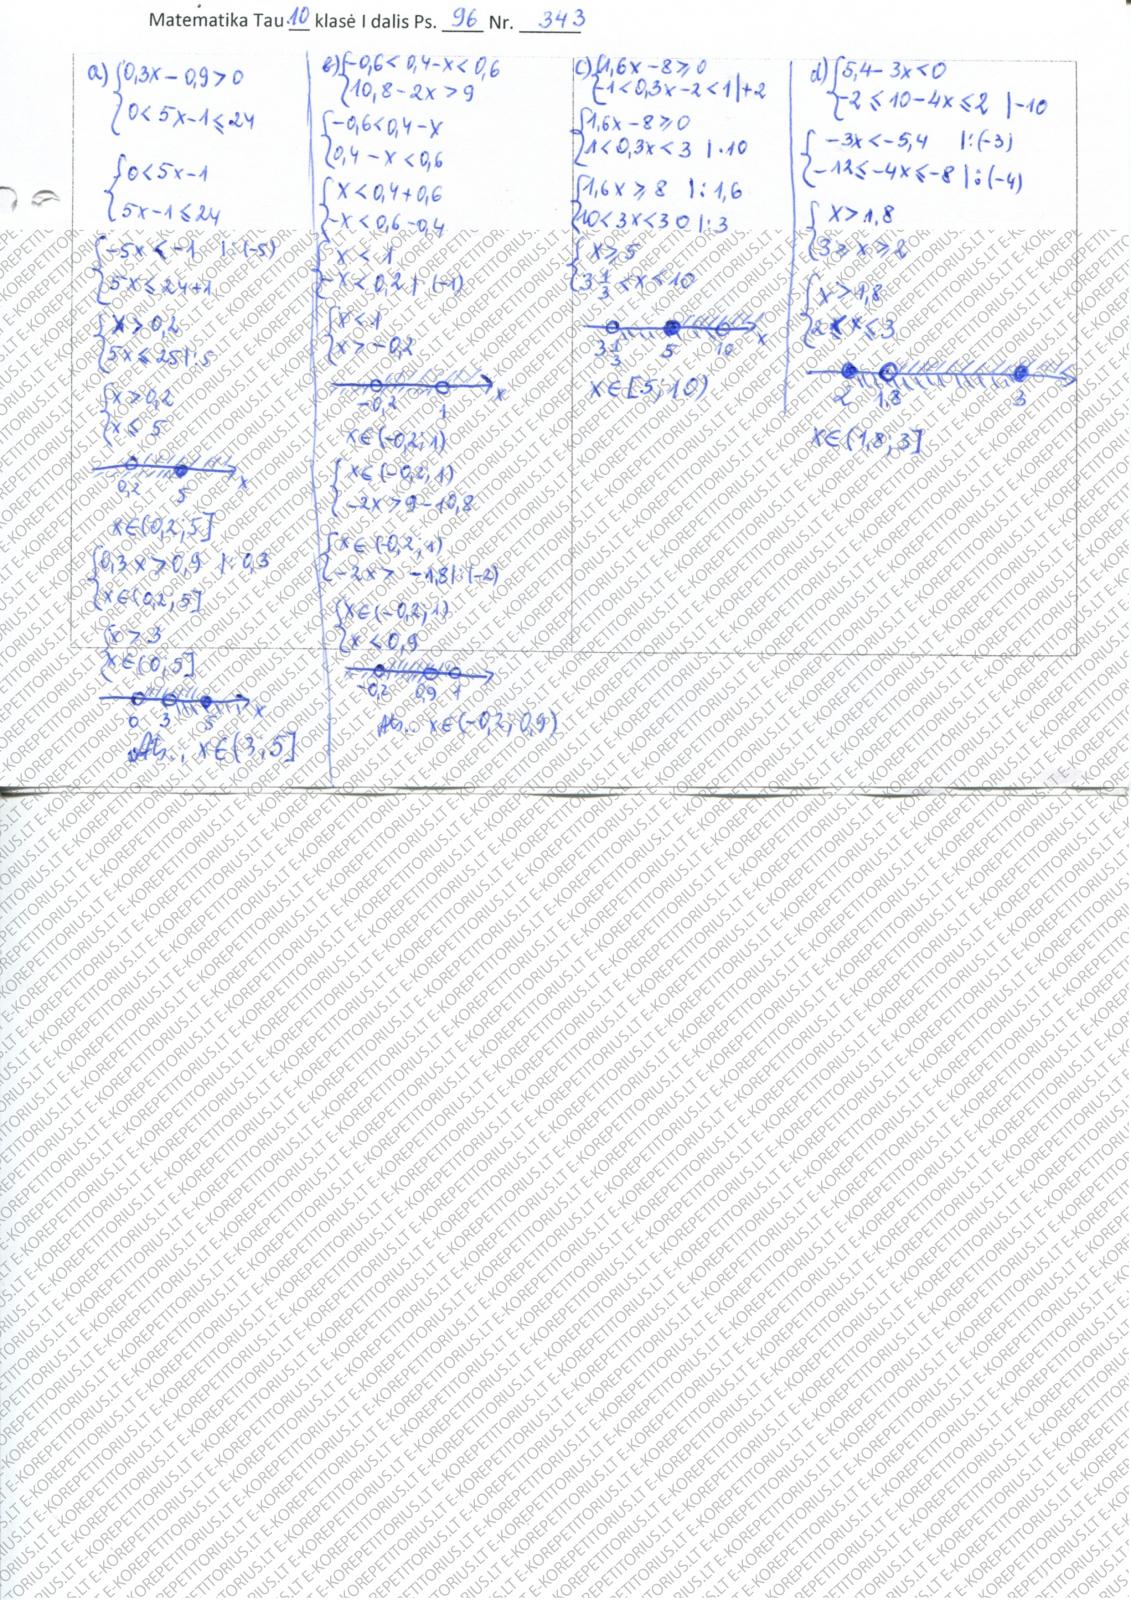 Matematika Tau 10 klasė I dalis Ps. 96 Nr. 343
a) {0,3x - 0,9 > 0
{0 < 5x - 1 ⩽ 24
{0 < 5x - 1
{5x - 1 ⩽ 24
{-5x < -1 |:(-5)
{5x ⩽ 24+1
{x > 0,2
{5x ⩽ 25 |:5
{x > 0,2
{x ⩽ 5
0,2 5 x
x∈(0,2; 5]
{0,3x > 0,9 |:0,3
{x∈(0,2; 5]
{x > 3
{x∈(0; 5]
0 3 5 x
Ats.: x∈(3; 5]
b) {-0,6 < 0,4 - x < 0,6
{10,8 - 2x > 9
{-0,6 < 0,4 - x
{0,4 - x < 0,6
{x < 0,4 + 0,6
{-x < 0,6 - 0,4
{x < 1
{-x < 0,2 | (-1)
{x < 1
{x > -0,2
-0,2 1 x
x∈(-0,2; 1)
{x∈(-0,2; 1)
{-2x > 9 - 10,8
{x∈(-0,2; 1)
{-2x > -1,8 |:(-2)
{x∈(-0,2; 1)
{x < 0,9
-0,2 0,9 1
Ats.: x∈(-0,2; 0,9)
c) {1,6x - 8 ⩾ 0
{-1 < 0,3x - 2 < 1 |+2
{1,6x - 8 ⩾ 0
{1 < 0,3x < 3 |·10
{1,6x ⩾ 8 |:1,6
{10 < 3x < 30 |:3
{x ⩾ 5
{3 1/3 < x < 10
3 1/3 5 10 x
x∈[5; 10)
d) {5,4 - 3x < 0
{-2 ⩽ 10 - 4x ⩽ 2 |-10
{-3x < -5,4 |:(-3)
{-12 ⩽ -4x ⩽ -8 |:(-4)
{x > 1,8
{3 ⩾ x ⩾ 2
{x > 1,8
{2 ⩽ x ⩽ 3
2 1,8 3
x∈(1,8; 3]
E-KOREPETITORIUS.LT